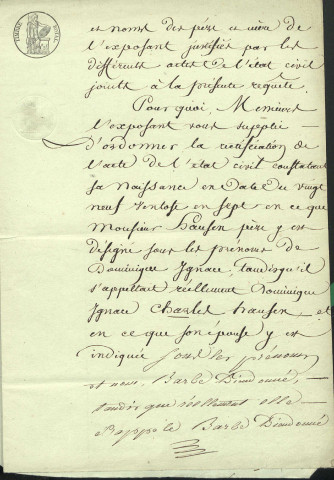 et noms des père et mère de
l'exposant justifiés par les
différents actes de l'état civil
joints à la présente requête.
Pourquoi, Messieurs
l'exposant vous supplie
d'ordonner la rectification de
l'acte de l'état civil constatant
sa naissance en date du vingt
neuf ventose an sept en ce que
Monsieur hausen père y est
désigné sous les prénoms de
Dominique Ignace, tandis qu'il
s'appellait réellement Dominique
Ignace Charles hausen, et
en ce que son épouse y est
indiquée sous les prénoms
et nom Barbe Dieudonné,
tandis que réellement elle
s'appele Barbe Dieudonné